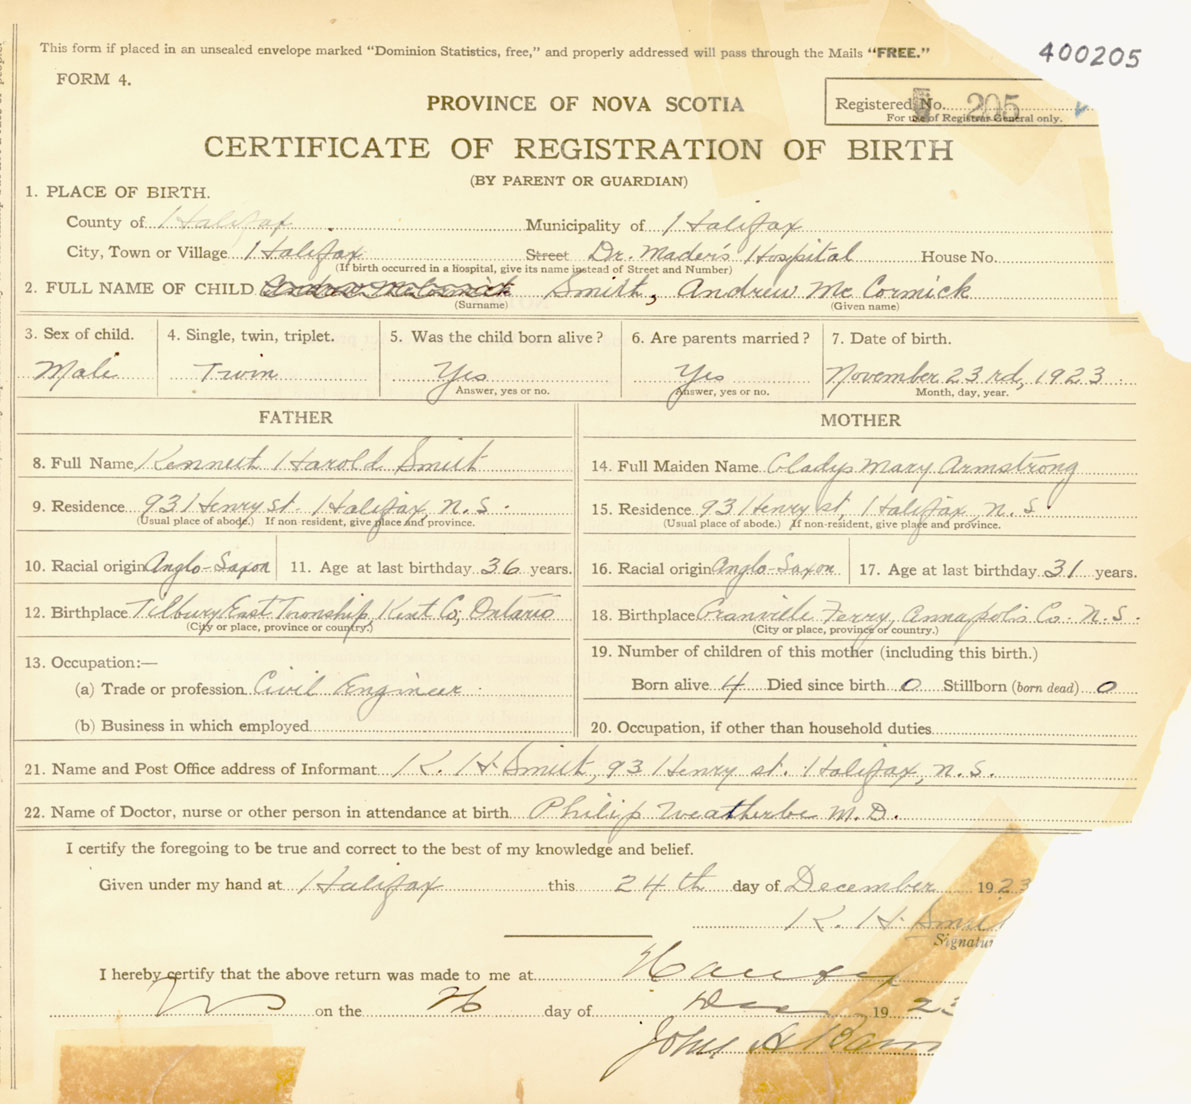 This form if placed in an unsealed envelope marked "Dominion Statistics, free," and properly addressed will pass through the Mails "FREE."
400205
FORM 4.
PROVINCE OF NOVA SCOTIA
Registered No. 205
For use of Registrar General only.
CERTIFICATE OF REGISTRATION OF BIRTH
(BY PARENT OR GUARDIAN)
1. PLACE OF BIRTH.
County of Halifax Municipality of Halifax
City, Town or Village Halifax Street Dr. Mader's Hospital House No.
(If birth occurred in a hospital, give its name instead of Street and Number)
2. FULL NAME OF CHILD Andrew McCormick Smith, Andrew McCormick
(Surname) (Given name)
3. Sex of child. 4. Single, twin, triplet. 5. Was the child born alive? 6. Are parents married? 7. Date of birth.
Male Twin Yes Yes November 23rd, 1923
Answer, yes or no. Answer, yes or no. Month, day, year.
FATHER MOTHER
8. Full Name Kenneth Harold Smith 14. Full Maiden Name Gladys Mary Armstrong
9. Residence 93 Henry St. Halifax, N.S. 15. Residence 93 Henry St, Halifax, N.S.
(Usual place of abode.) If non-resident, give place and province. (Usual place of abode.) If non-resident, give place and province.
10. Racial origin Anglo-Saxon 11. Age at last birthday 36 years. 16. Racial origin Anglo-Saxon 17. Age at last birthday 31 years.
12. Birthplace Tilbury East Township, Kent Co, Ontario 18. Birthplace Granville Ferry, Annapolis Co. N.S.
(City or place, province or country.) (City or place, province or country.)
13. Occupation:— 19. Number of children of this mother (including this birth.)
(a) Trade or profession Civil Engineer Born alive 4 Died since birth 0 Stillborn (born dead) 0
(b) Business in which employed 20. Occupation, if other than household duties
21. Name and Post Office address of Informant K. H. Smith, 93 Henry St. Halifax, N.S.
22. Name of Doctor, nurse or other person in attendance at birth Philip Weatherbe M.D.
I certify the foregoing to be true and correct to the best of my knowledge and belief.
Given under my hand at Halifax this 24th day of December 1923
K. H. Smi
Signatur
I hereby certify that the above return was made to me at
on the 26 day of Dec 1923
John A Barn